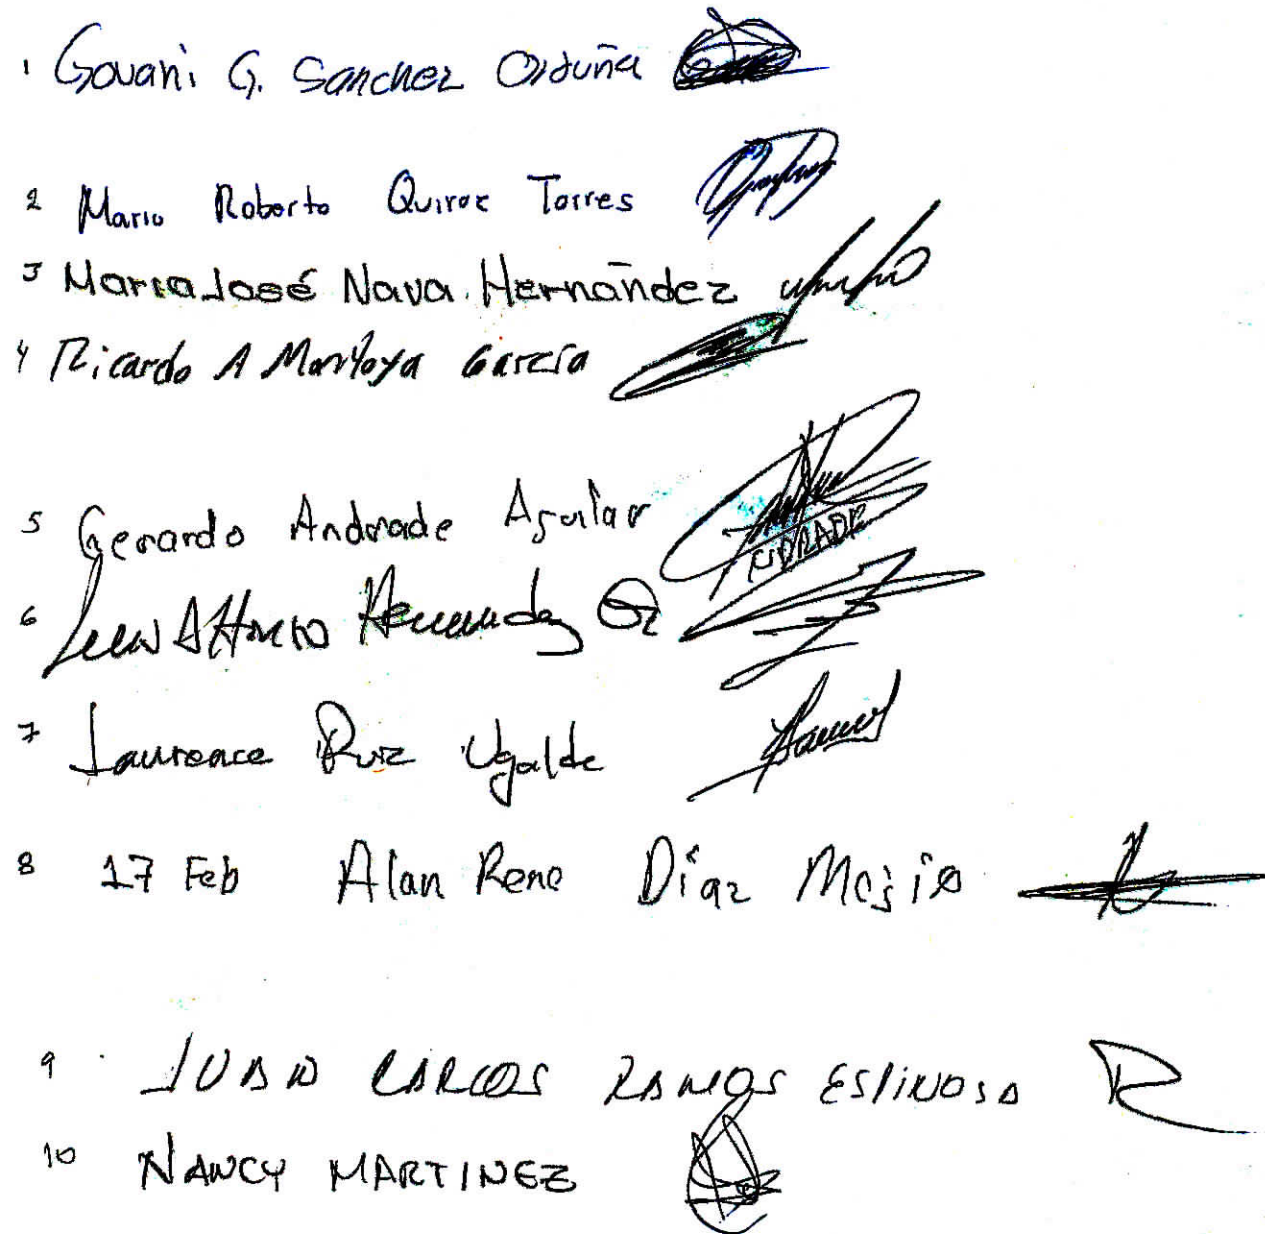 1 Govani G. Sanchez Orduña
2 Mario Roberto Quiroz Torres
3 Maria José Nava Hernández
4 Ricardo A Montoya García
5 Gerardo Andrade Aguilar
ANDRADE
6 Luis Alfonso Hernandez
7 Laurence Ruiz Ugalde
8 17 Feb Alan Rene Díaz Mejia
9 JUAN CARLOS RAMOS ESPINOSA
10 NANCY MARTINEZ